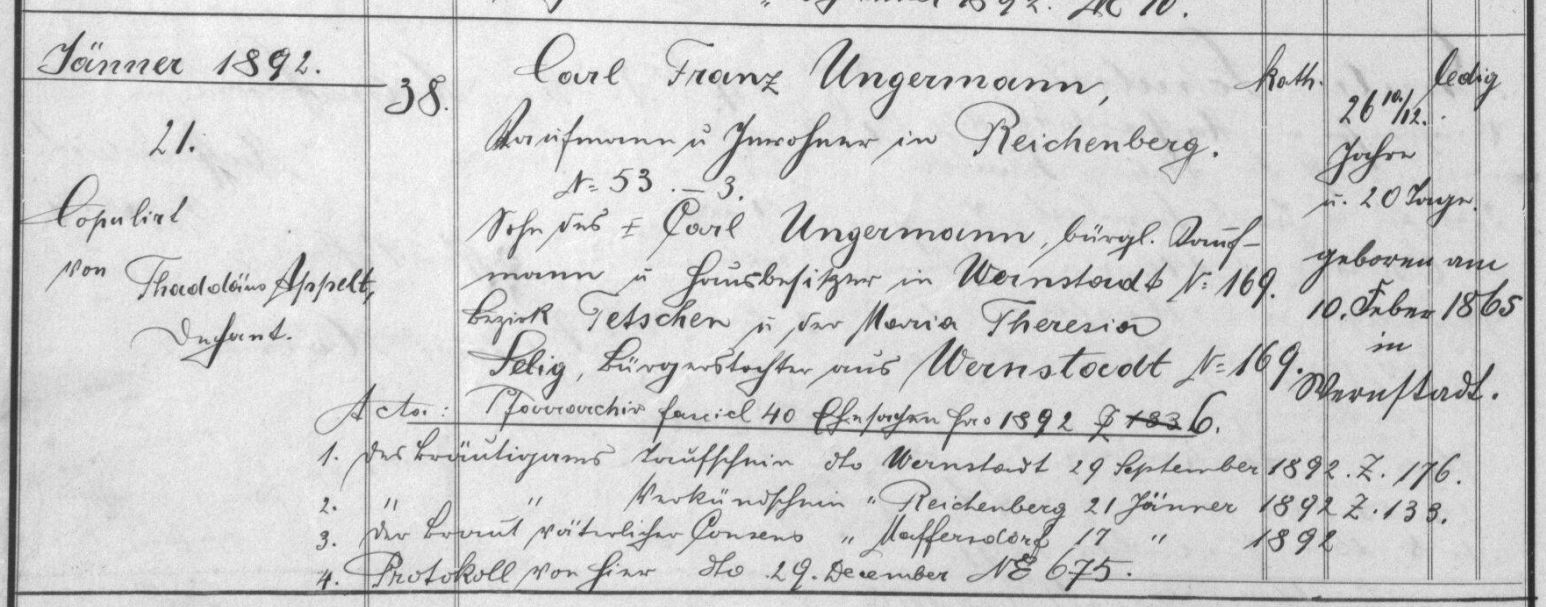 1892. № 10.
Jänner 1892.
21.
Copulirt
von Thaddäus Appelt,
Dechant.
38.
Carl Franz Ungermann,
Kaufmann u Inwohner in Reichenberg.
N= 53.–3.
Sohn des ‡ Carl Ungermann, bürgl. Kauf-
mann u Hausbesitzer in Wernstadt N= 169.
Bezirk Tetschen u der Maria Theresia
Selig, Bürgerstochter aus Wernstadt N= 169.
kath.
26 10/12.
Jahre
u. 20 Tage.
geboren am
10. Feber 1865
in
Wernstadt.
ledig
Acta: Pfarrarchiv fascicl 40 Ehesachen pro 1892 183 6.
1. des Bräutigams Taufschein dto Wernstadt 29 September 1892. Z. 176.
2. " " Verkündschein " Reichenberg 21 Jänner 1892 Z. 133.
3. der Braut väterlicher Consens " Maffersdorf 17 " 1892
4. Protokoll von hier dto 29. December NE 675.